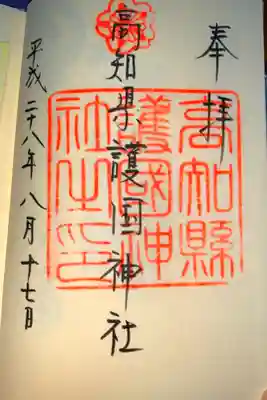 奉拝
高知縣護國神社之印
高知県護国神社
平成二十八年八月十七日